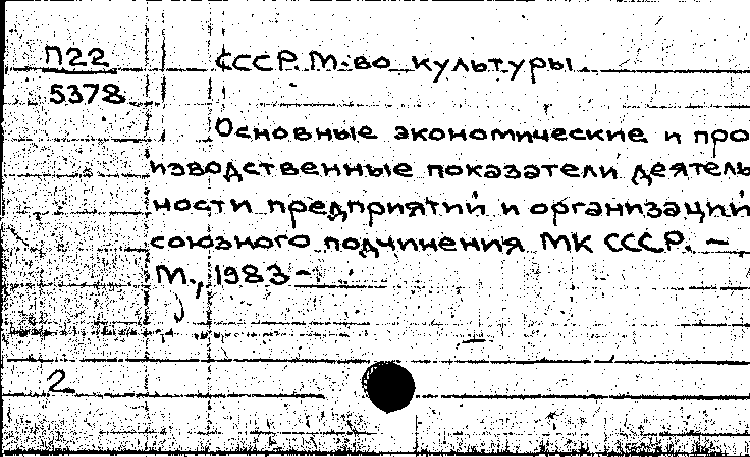 П22
5378
СССР. М-во культуры.
Основные экономические и про
изводственные показатели деятель
ности предприятий и организаций
союзного подчинения МК СССР. —
М., 1983-
2